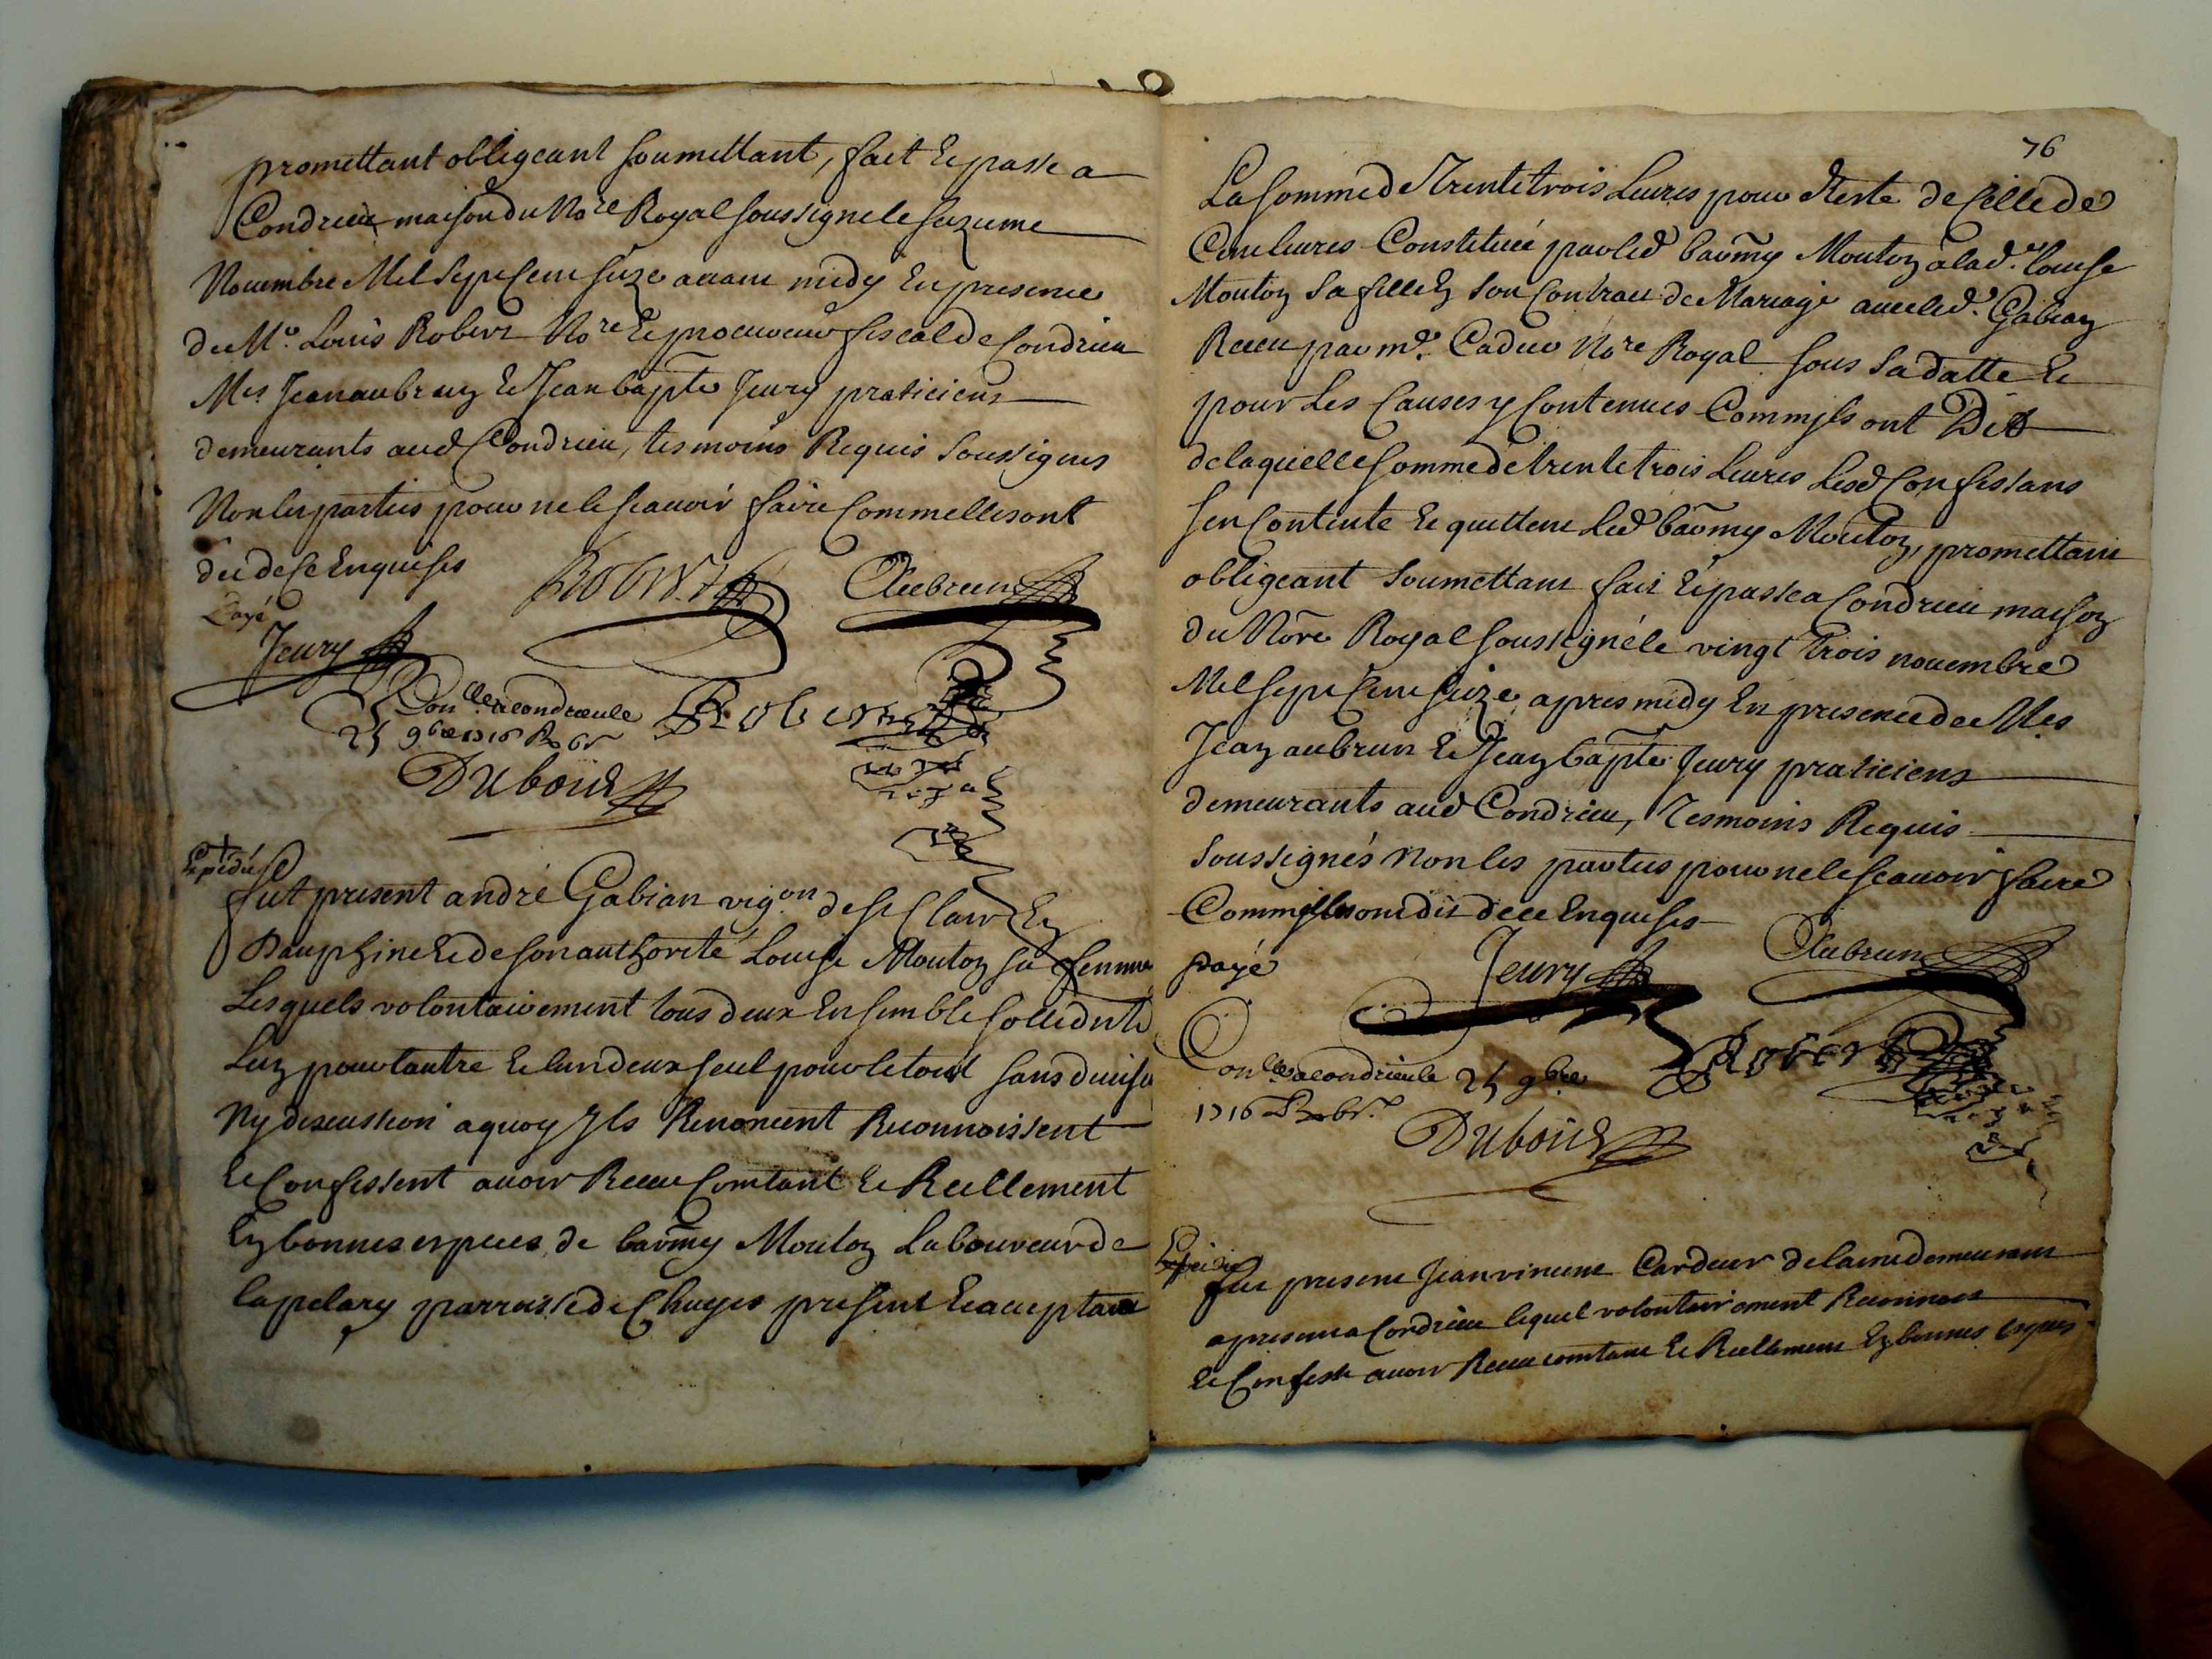 promettant obligeant soumettant, fait & passé a
Condrieu maison du No.re Royal soussigné le sezieme
Nouembre Mil sept cent seize auant midy En presence
de M.e Louis Robert No.re & procureur fiscal de Condrieu
M.es Jean aubrun & Jean bapte Jeury praticiens
demeurants aud Condrieu, tesmoins Requis soussignes
Non les parties pour ne le scauoir faire Comme elles ont
dit de ce Enquises
Payé
Robert
Aubrun
Jeury
Con.lle a condrieu le
25 9bre 1716
Robert
Dubois
Expedié
fut present andré Gabian vig.on de st Clair En
Dauphiné & de son authorité Louise Mouton sa femme
Lesquels volontairement tous deux Ensemble
Lun pour lautre & lun deux seul pour le tout sans
Ny discussion a quoy Ils Renoncent Reconnoissent
& Confessent auoir Receu Comtant & Reellement
En bonnes especes de barmy Mouton Laboureur de
lapelary parroisse de Chuyes present & acceptant
76
La somme de Trente trois Liures pour Reste de Celle de
Cent liures Constituée par led barmy Mouton a lad. Louise
Mouton sa fille En son Contract de Mariage auec led. Gabian
Receu par m.e Cadier No.re Royal sous sa datte &
pour Les Causes y Contenues Comme Ils ont Dit
de laquelle somme de trente trois Liures Lesd Confessans
sen Contente & quittent Led barmy Mouton, promettant
obligeant soumettant fait & passé a Condrieu maison
du Nore Royal soussigné le vingt trois nouembre
Mil sept cent seize, apres midy En presence de M.es
Jean aubrun & Jean bapte Jeury praticiens
demeurants aud Condrieu, Tesmoins Requis
soussignés Non les parties pour ne le scauoir faire
Comme Ils ont dit de ce Enquises
payé
Jeury
Aubrun
Con.lle a condrieu le 25 9bre
1716
Robert
Dubois
Expedié
fut present Jean vincent Cardeur de laine demeurant
a present a Condrieu lequel volontairement Reconnoit
& Confesse auoir Receu comtant & Reellement En bonnes especes